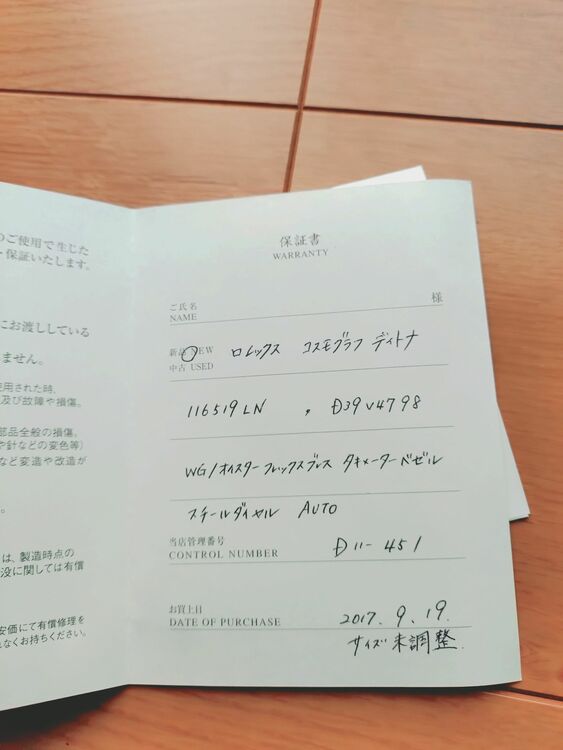 のご使用で生じた
・保証いたします。
にお渡ししている
ません。
使用された時、
及び故障や損傷。
部品全般の損傷。
や針などの変色等)
など変造や改造が
は、製造時点の
没に関しては有償
安価にて有償修理を
なくお持ちください。
保証書
WARRANTY
ご氏名
NAME
様
新品 NEW ロレックス コスモグラフ デイトナ
中古 USED
116519LN , D39V4798
WG/オイスターフレックスブレス タキメーターベゼル
スチールダイヤル AUTO
当店管理番号
CONTROL NUMBER D11-451
お買上日
DATE OF PURCHASE 2017.9.19.
サイズ未調整